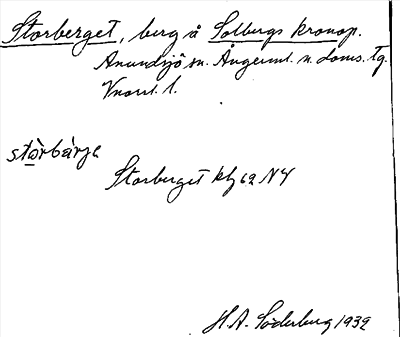 Storberget, berg å Solbergs kronop.
Anundsjö sn. Ångerml. n. doms. Tg.
Vnorrl. l.
stòrbärje
Storberget kbl 62 NY
H.A. Söderberg 1932